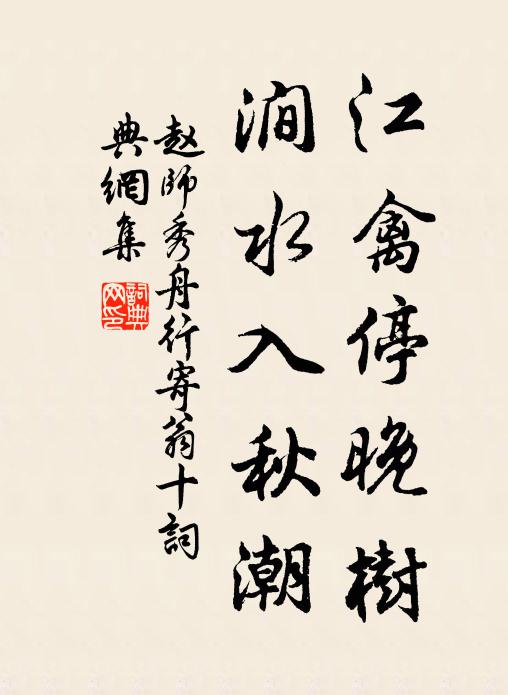 江禽停晚樹
澗水入秋潮
赵師秀舟行寄翁十詞
典網集
詞典
网印